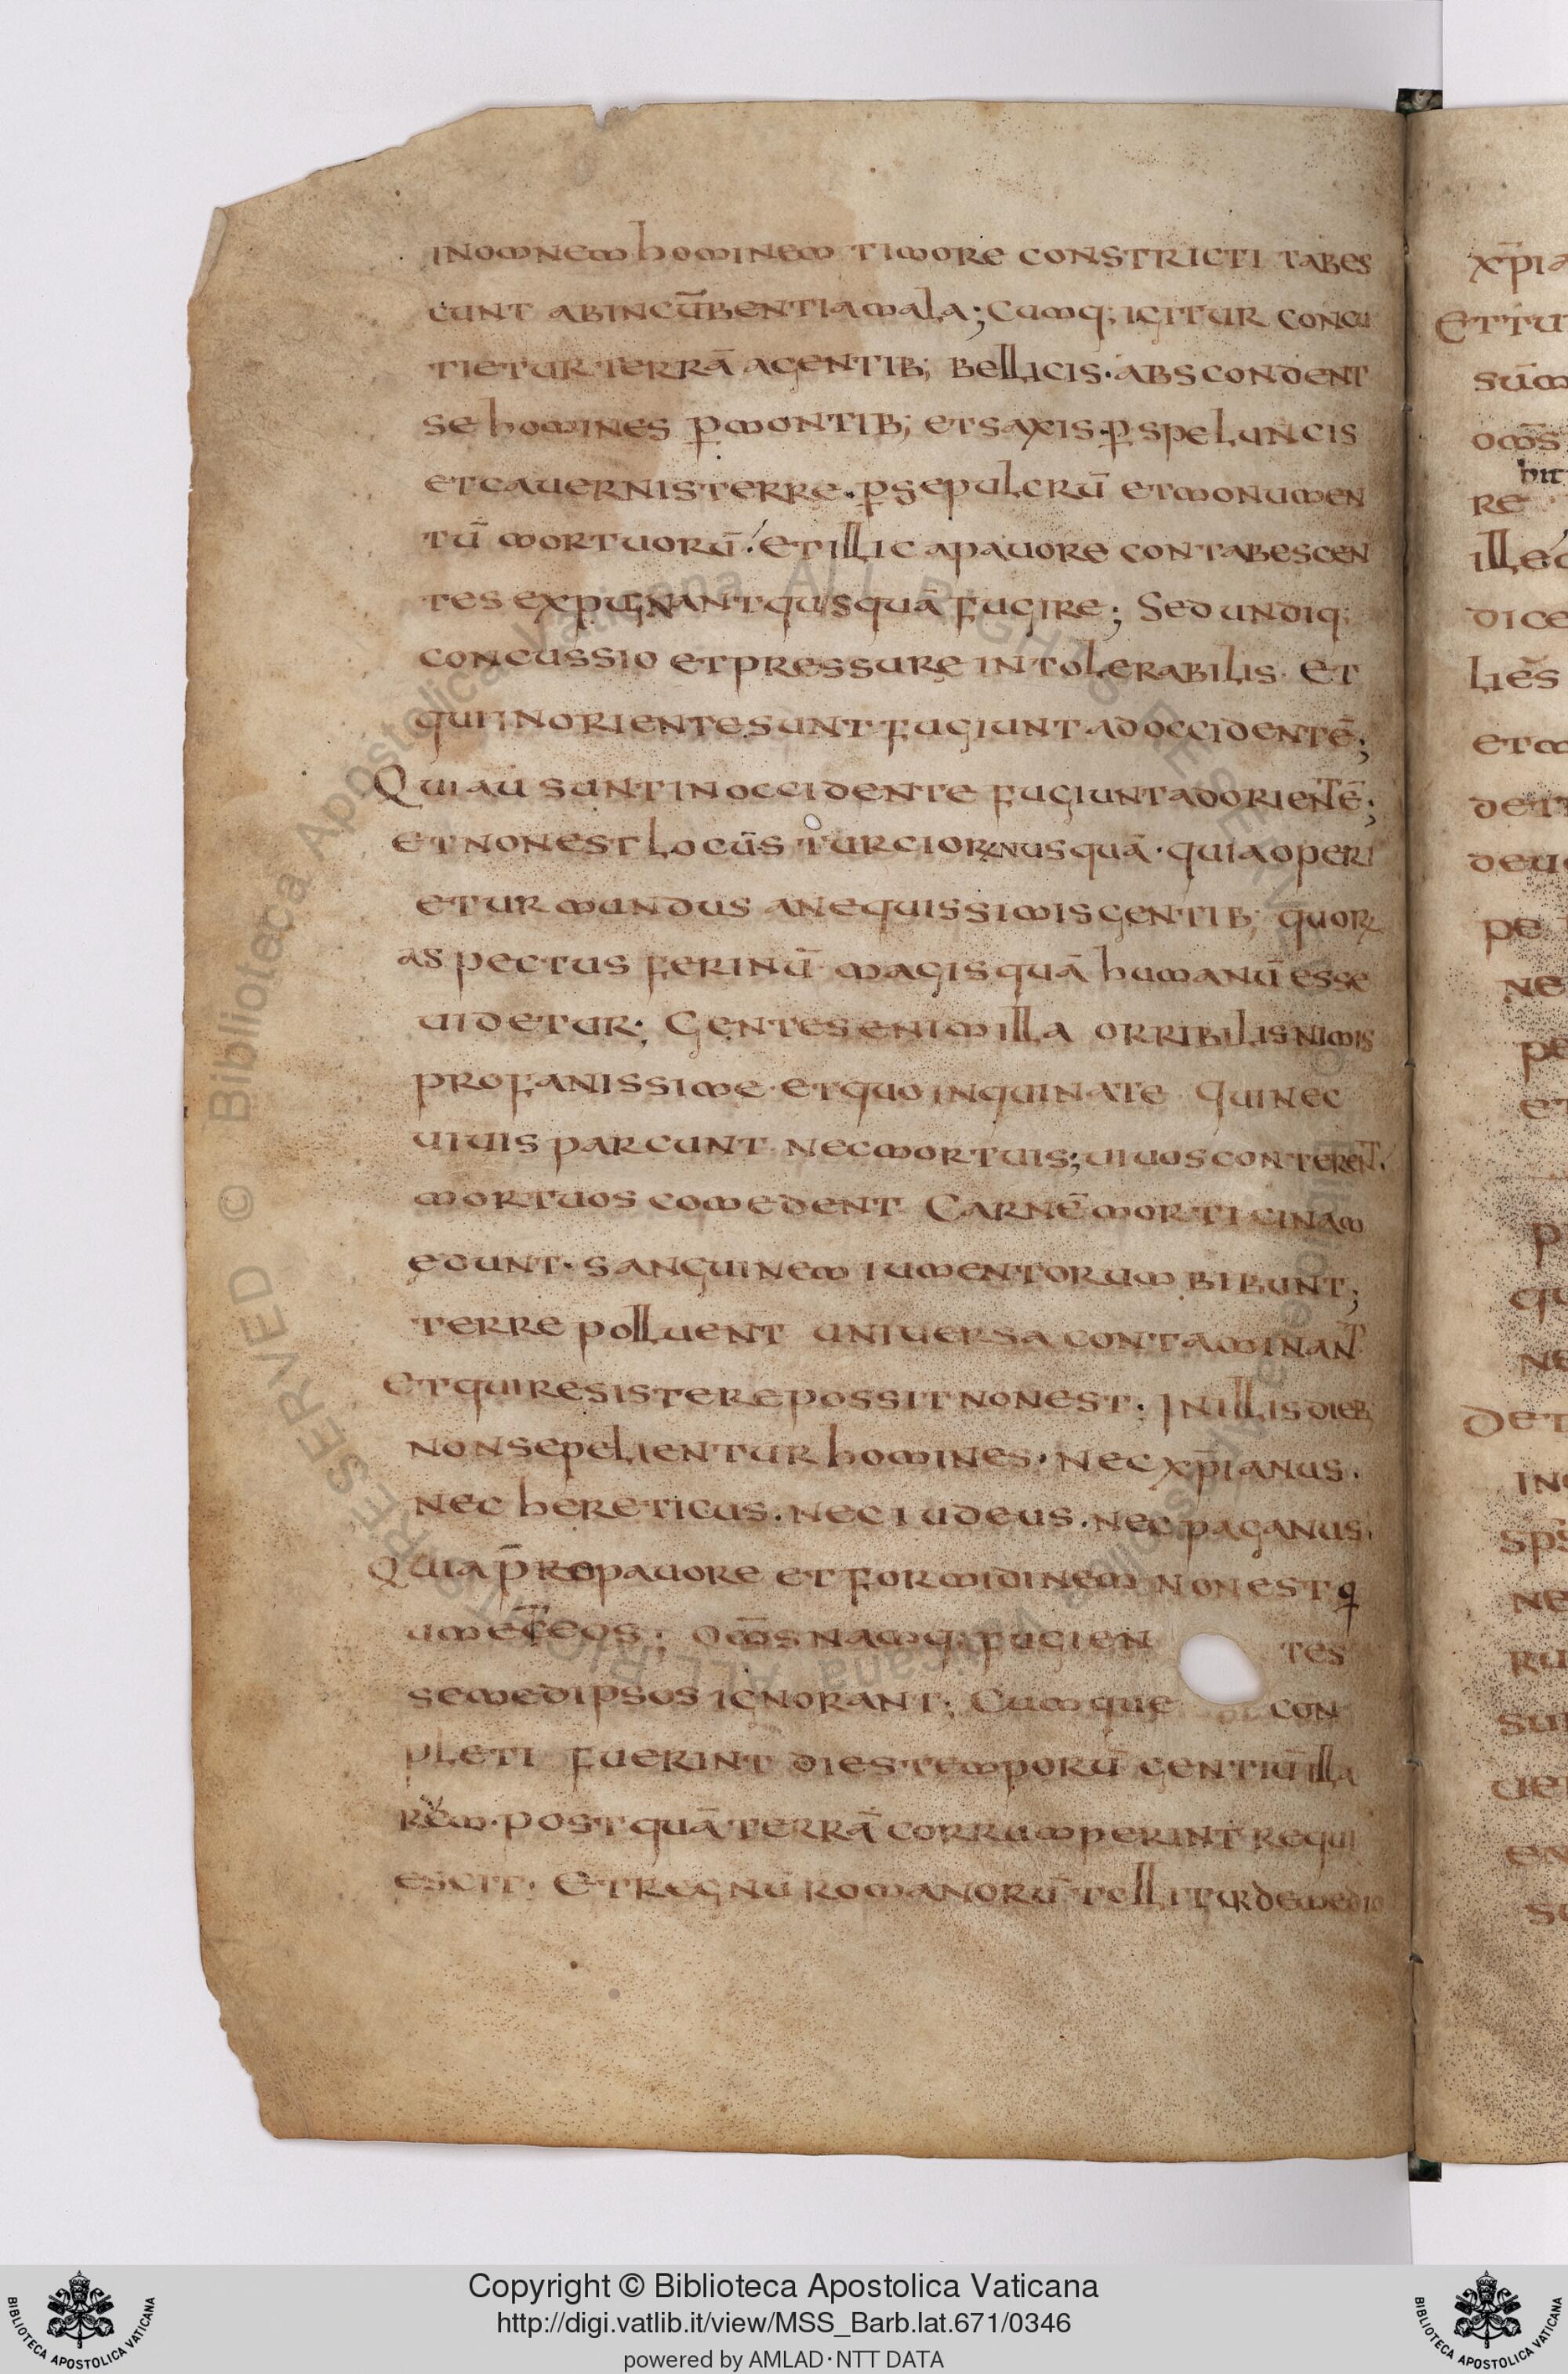 in omnem hominem timore constricti tabes
cunt ab incūbentia mala; cumq; igitur concu
tietur terrā a gentib; bellicis · abscondent
se homines ꝑ montib; et saxis · ꝑ speluncis
et cauernis terre · ꝑ sepulcrū et monumen
tū mortuorū · et illic a pauore contabescen
tes expugnant quisquā fugire; Sed undiq;
concussio et pressure intolerabilis · Et
qui in oriente sunt fugiunt ad occidentē;
Qui aū sunt in occidente fugiunt ad orientē;
et non est locūs turcioꝝ nusquā · quia operi
etur mundus a nequissimis gentib; quoꝝ
aspectus ferinū magis quā humanū esse
uidetur; Gentes enim illa orribilis nimis
profanissime · et quoinquinate qui nec
uiuis parcunt nec mortuis; uiuos conterent ·
mortuos comedent Carnē morticinam
edunt · sanguinem iumentorum bibunt;
terre polluent uniuersa contaminant
Et qui resistere possit non est; In illis dieb;
non sepelientur homines · nec xp̄ianus ·
nec hereticus · nec iudeus · nec paganus ·
Quia p̄ro pauore et formidinem non est q
umet eos; om̄s namq; fugien tes
semedipsos ignorant; Cumque con
pleti fuerint dies temporū gentiū illa
rem · postquā terrā corrumperint requi
escit · Et regnū romanorū tollitur de medio
xp̄ia
Et tu
sūm
om̄s
bit
re
ille
dice
lies
et m
det
deu
pe
ne
pe
et
p
qu
ne
Det
in
sp̄s
ne
ru
sui
uer
en
se
© Biblioteca Apostolica Vaticana ALL RIGHTS RESERVED
Copyright © Biblioteca Apostolica Vaticana
http://digi.vatlib.it/view/MSS_Barb.lat.671/0346
powered by AMLAD·NTT DATA
BIBLIOTECA APOSTOLICA VATICANA
BIBLIOTECA APOSTOLICA VATICANA